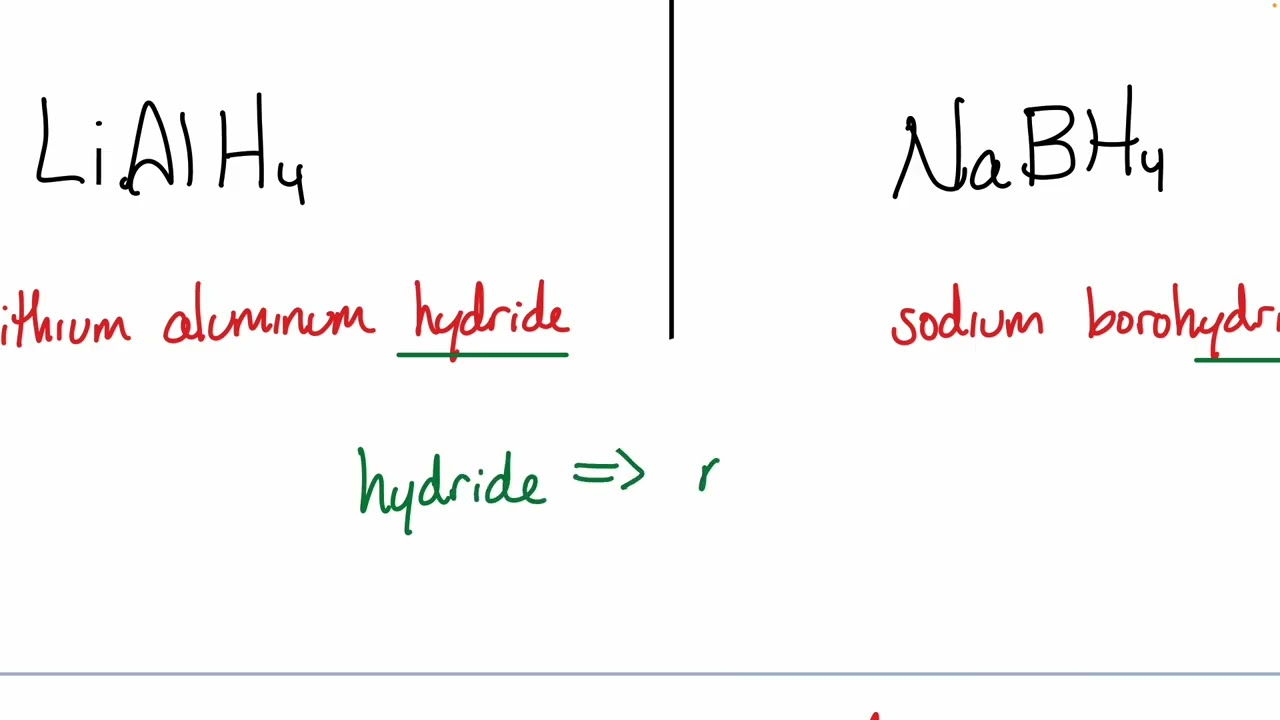 LiAlH4
NaBH4
ithium aluminum hydride
sodium borohydri
hydride => r